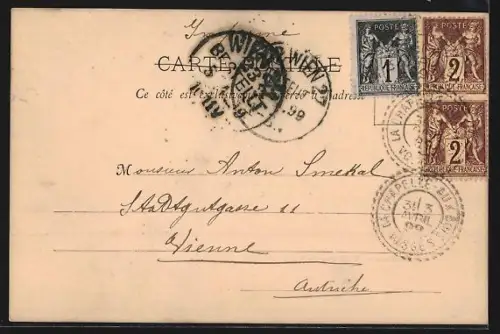 Imprimé
CARTE POSTALE
Ce côté est exclusivement réservé à l'adresse
POSTE
1
REPUBLIQUE FRANÇAISE
POSTE
2
REPUBLIQUE FRANÇAISE
POSTE
2
REPUBLIQUE FRANÇAISE
WIEN
BESTELLT
WIEN
99
LA CHAPELLE-AUX-BOIS
VOSGES
3
AVRIL
99
Monsieur Anton Smekal
Stadtgutgasse 11
Vienne
Autriche